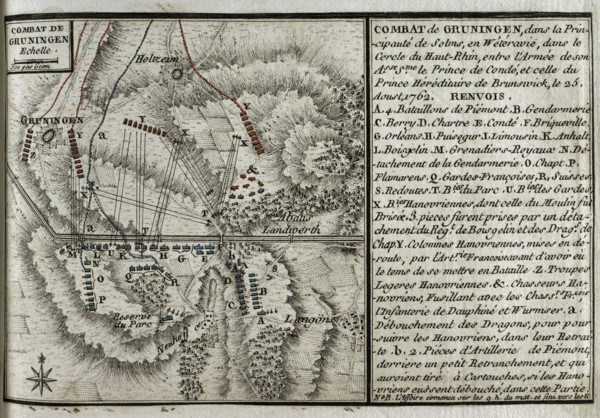 COMBAT DE
GRUNINGEN
Echelle
Holtzeim
GRUNINGEN
Z
Y
Y
Y
X
X
X
&
a
a
T
T
T
Abaus
Landwerth
M
L
U
K
H
G
b
R
B
Q
S
F
E
D
C
B
A
N
O
P
Reserve
du Parc
Langöns
COMBAT de GRUNINGEN, dans la Prin-
-cipauté de Solms, en Wéteravie, dans le
Cercle du Haut-Rhin, entre l'Armée de son
Asse Sme le Prince de Condé, et celle du
Prince Héréditaire de Brunswick, le 25.
Aoust, 1762. RENVOIS.
A. 4. Bataillons de Piémont. B. Gendarmerie
C. Berry D. Chartre E. Condé F. Briqueville
G. Orléans. H. Puisegur I. Limousin. K. Anhalt.
L. Boisgelin M. Grenadiers-Royaux N. Dé-
-tachement de la Gendarmerie. O. Chapt. P.
Flamarens. Q. Gardes-Françoises, R, Suisses
S. Redoutes. T. Bies du Parc. U. Bies des Gardes,
X. Bies Hanovriennes, dont celle du Moulin fut
Brisée 3. pièces fûrent prises par un déta-
-chement du Régt de Boisgelin et des Drags de
Chapt. Y. Colomnes Hanovriennes, mises en dé-
-route, par l'Artrie Francois avant d'avoir eu
le tems de se mettre en Bataille. Z. Troupes
Légeres Hanovriennes. &. Chasseurs Ha-
-novriens, Fusillant avec les Chassrs Franc
l'Infanterie de Dauphiné et Wurmser. a.
Débouchement des Dragons, pour pour-
-suivre les Hanovriens, dans leur Retrai-
-te. b. 2. Pièces d'Artillerie de Piémont,
derrière un petit Retranchement, et qui
auroient tiré à Cartouches, si les Hano-
-vriens eussent débouché, dans cette Partie.
N.B. L'Affaire comença sur les 9 h. du mat. et fini vers les